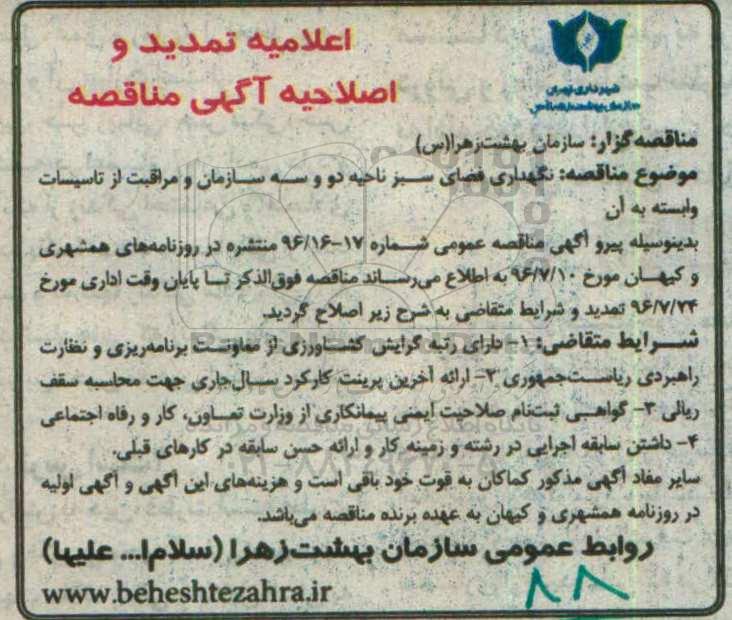 اعلامیه تمدید و
اصلاحیه آگهی مناقصه
شهرداری تهران
مناقصه‌گزار: سازمان بهشت‌زهرا(س)
موضوع مناقصه: نگهداری فضای سبز ناحیه دو و سه سازمان و مراقبت از تاسیسات
وابسته به آن
بدینوسیله پیرو آگهی مناقصه عمومی شماره ۱۷-۹۶/۱۶ منتشره در روزنامه‌های همشهری
و کیهان مورخ ۹۶/۷/۱۰ به اطلاع می‌رساند مناقصه فوق‌الذکر تا پایان وقت اداری مورخ
۹۶/۷/۲۴ تمدید و شرایط متقاضی به شرح زیر اصلاح گردید.
شرایط متقاضی: ۱- دارای رتبه گرایش کشاورزی از معاونت برنامه‌ریزی و نظارت
راهبردی ریاست‌جمهوری ۲- ارائه آخرین پرینت کارکرد سال‌جاری جهت محاسبه سقف
ریالی ۳- گواهی ثبت‌نام صلاحیت ایمنی پیمانکاری از وزارت تعاون، کار و رفاه اجتماعی
۴- داشتن سابقه اجرایی در رشته و زمینه کار و ارائه حسن سابقه در کارهای قبلی.
سایر مفاد آگهی مذکور کماکان به قوت خود باقی است و هزینه‌های این آگهی و آگهی اولیه
در روزنامه همشهری و کیهان به عهده برنده مناقصه می‌باشد.
روابط عمومی سازمان بهشت‌زهرا (سلام‌ا... علیها)
www.beheshtezahra.ir
۸۸